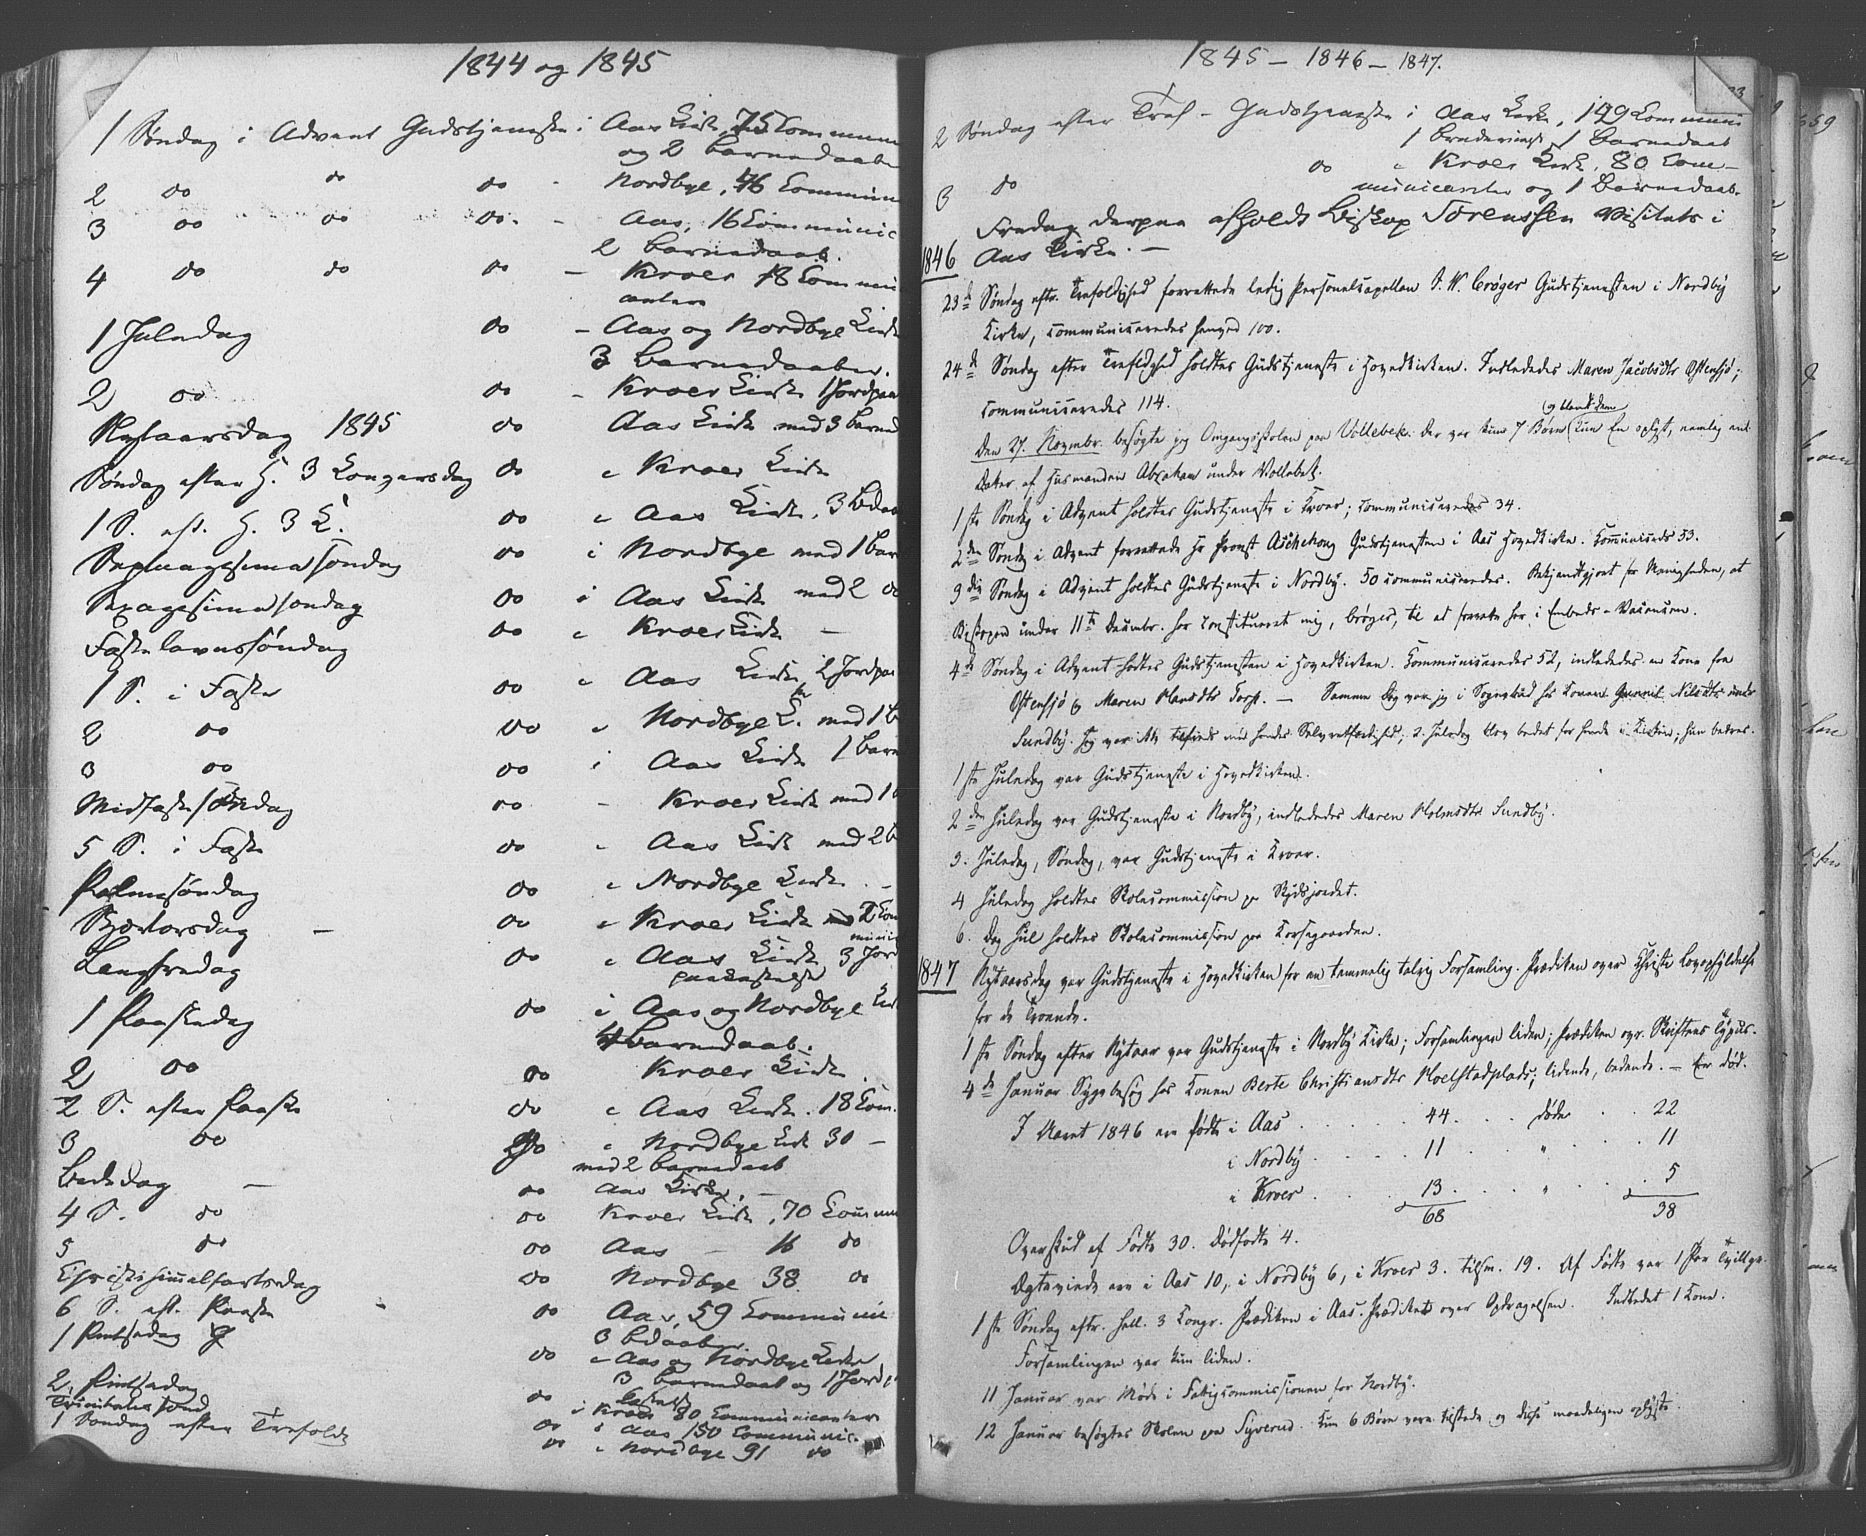 1844 og 1845
1 Søndag i Advent Gudstjeneste i Aas Kirke, 75 Commun
og 2 Barnedaabe
2 do do do - Nordbye, 46 Commun
3 do do do - Aas, 16 Communic
2 Barnedaab.
4 do do do - Kroer 18 Communi
canter
1 Juledag do - Aas og Nordbye Kirke
3 Barnedaaber.
2 do do - Kroer Kirke 1 Jordpaa
Nytaarsdag 1845 do Aas Kirke med 3 Barned
Søndag efter H. 3 Kongersdag do i Kroer Kirke
1 S. eft. H. 3 K. do i Aas Kirke, 3 Bdaa
Septuagesima søndag do i Nordbye med 1 Bar
Sexagesima søndag do i Aas Kirke med 2 do
Fastelavnssøndag do i Kroer Kirke -
1 S. i Faste do i Aas Kirke 2 Jordpaa
2 do do i Nordbye K. med 1 B
3 do do i Aas Kirke 1 Barn
Midfastesøndag do - Kroer Kirke med 1
5 S. i Faste do - Aas Kirke med 2 B
Palmesøndag do i Nordbye Kirke -
Skjærtorsdag - do i Kroer Kirke 2 Com
munic
Langfredag do i Aas Kirke 3 Jord
paakastelse
1 Paaskedag do i Aas og Nordbye Kir
4 Barnedaab.
2 do do Kroer Kirke
2 S. efter Paaske do i Aas Kirke. 18 Com.
3 do do i Nordbye Kirk 30 -
med 2 Barnedaab
Bededag - do Aas Kirke, -
4 S. do do Kroer Kirke, 70 Commun
5 do do Aas - 16 do
Christi himmelfartsdag do Nordbye 38 do
6 S. eft. Paaske do Aas, 59 Communic
3 Bdaaber
1 Pintsedag do i Aas og Nordbye Kirke
3 Barnedaab og 1 Jordp
kastelse
2. Pintsedag do i Kroer 80 Communicanter
Trinitatis sønd do i Aas 150 Communic-
1 Søndag efter Trefoldr do i Nordbye 91 do
1845 - 1846 - 1847.
2 Søndag efter Tref - Gudstjeneste i Aas Kirke, 199 Communi
1 Brudevielse 1 Barnedaab
3 do do i Kroer Kirke, 80 Com-
municanter og 1 Barnedaab.
Fredag derpaa afholdt Biskop Sørenssen Visitats i
1846 Aas Kirke. -
23d Søndag eftr. Trefoldighed forrettede ledig Personelcapellan S. W. Crøger Gudstjenesten i Nordby
Kirke, communiceredes henved 100.
24d Søndag efter Trefldghed holdtes Gudstjeneste i Hovedkirken. Indledes Maren Jacobsdtr Østensjø;
communiceredes 114.
og blandt dem
Den 27. Novembr. besøgte jeg Omgangsskolen paa Vollebek. Der var kun 7 Børn kun En oplyst, nemlig en
Datter af Husmanden Abraham under Vollebek.
1ste Søndag i Advent holdtes Gudstjeneste i Kroer; communiceredes 34.
2den Søndag i Advent forrettede Hr Provst Aschehoug Gudstjenesten i Aas Hovedkirke. Communicereds 53.
3die Søndag i Advent holdtes Gudstjeneste i Nordby. 50 communiceredes. Bekjendtgjort for Menigheden, at
Biskopen under 11te Decembr. har constitueret mig, Crøger, til at forrette her i Embeds-Vacancen.
4de Søndag i Advent holdtes Gudstjenesten i Hovedkirken. Communiceredes 52, indlededes en Kone fra
Østensjø og Maren Hansdtr Torgt. - Samme Dag var jeg i Sognebud hos Konen Gunnil Nilsdtr under
Sundby. Jeg var ikke tilfreds med hendes Selvretfærdighed; 2. Juledag blev bedet for hende i Kirken; hun bedres.
1ste Juledag var Gudstjeneste i Hovedkirken.
2den Juledag var Gudstjeneste i Nordby, indlededes Maren Holmsdtr Sundby.
3. Juledag, Søndag, var Gudstjeneste i Kroer.
4 Juledag holdtes Skolecommission paa Rydsjordet.
6. Dag Jul holdtes Skolecommission paa Korsegaarden.
1847 Nytaarsdag var Gudstjeneste i Hovedkirken for en temmelig talrig Forsamling. Prædiken over Christi Lovopfyldelse
for de Troende.
1ste Søndag efter Nytaar var Gudstjeneste i Nordby Kirke; Forsamlingen liden; Prædiken ovr. Skriftens Typus.
4de Januar Sygebesøg hos Konen Berte Christiansdtr Moelstadplads; lidende, bedende. - Er død.
I Aaret 1846 ere fødte i Aas . . . . 44. . . døde . . . 22
i Nordby . . . . 11 . . . " . . . 11
i Kroer . . . . 13. . . " . . . 5
68 38
Overskud af Fødte 30. Dødfødte 4.
Ægteviede ere i Aas 10, i Nordby 6, i Kroer 3. tilsm. 19. Af Fødte var 1 Par Tvillgr.
1ste Søndag eftr. hell. 3 Kongr. Prædiken i Aas. Prædiket over Opdragelsen. Indledet 1 Kone.
Forsamlingen var kun liden.
11 Januar var Møde i Fattigcommissionen for Nordby.
12 Januar besøgtes Skolen paa Syverud. Kun 6 Børn vare tilstede og disse maadeligen oplyste.